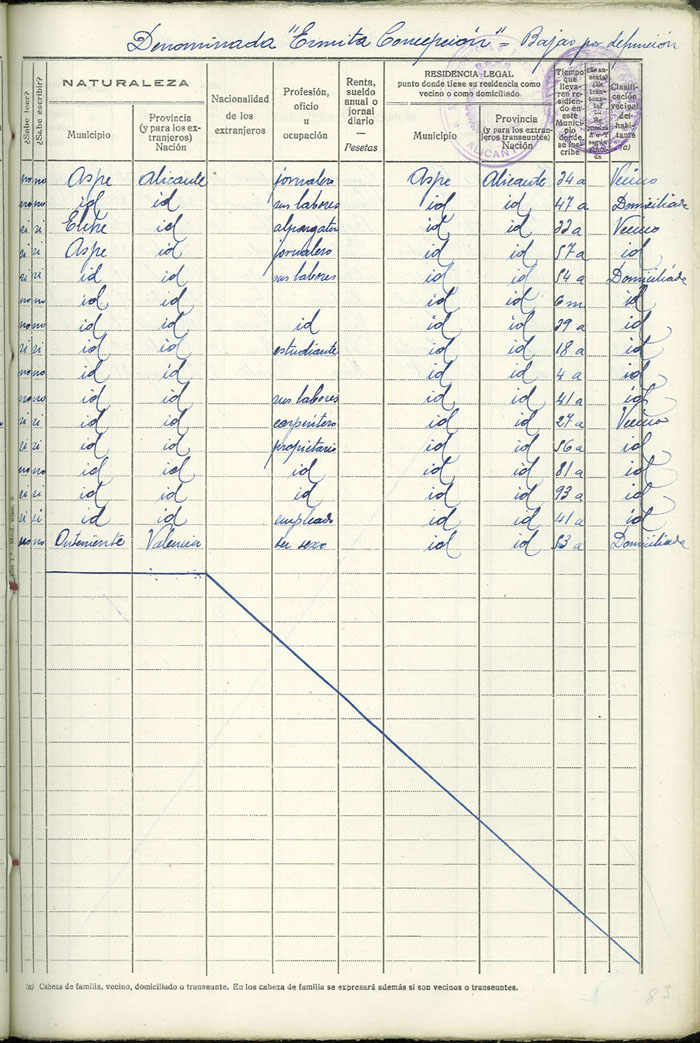 Denominada "Ermita Concepción" = Bajas por defunción
¿Sabe leer?
¿Sabe escribir?
NATURALEZA
Municipio
Provincia
(y para los ex-
tranjeros)
Nación
Nacionalidad
de los
extranjeros
Profesión,
oficio
u
ocupación
Renta,
sueldo
anual o
jornal
diario
—
Pesetas
RESIDENCIA LEGAL
punto donde tiene su residencia como
vecino o como domiciliado.
Municipio
Provincia
(y para los extran-
jeros transeuntes)
Nación
Tiempo
que
lleva-
ren re-
sidien-
do en
este
Munici-
pio
donde
se ins-
cribe
Clasifi-
cación
vecinal
del
habi-
tante
(a)
ALICANTE
no no Aspe Alicante jornalero Aspe Alicante 24 a Vecino
no no id id sus labores id id 47 a Domiciliada
si si Elche id alpargatero id id 22 a Vecino
si si Aspe id jornalero id id 57 a id
si si id id sus labores id id 54 a Domiciliada
no no id id id id 6 m id
no no id id id id id 29 a id
si si id id estudiante id id 18 a id
no no id id id id 4 a id
no no id id sus labores id id 41 a id
si si id id carpintero id id 27 a Vecino
si si id id propietario id id 56 a id
no no id id id id id 81 a id
si si id id id id id 93 a id
si si id id empleado id id 41 a id
no no Onteniente Valencia su sexo id id 53 a Domiciliada
(a) Cabeza de familia, vecino, domiciliado o transeunte. En los cabeza de familia se expresará además si son vecinos o transeuntes.
83